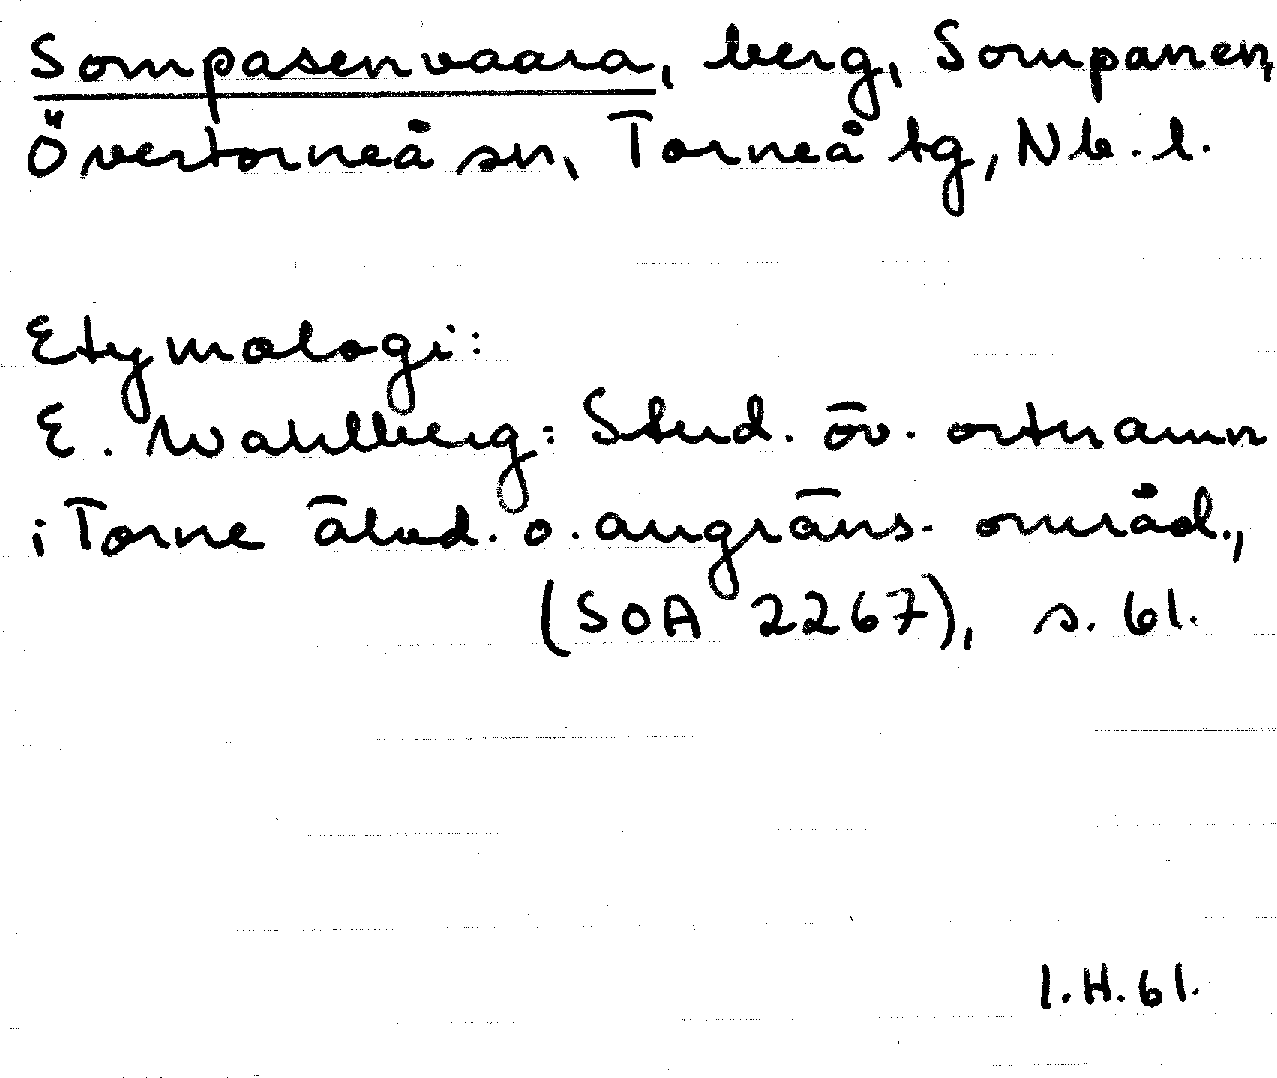 Sompasenvaara, berg, Sompanen,
Övertorneå sn, Torneå tg, Nb. l.
Etymologi:
E. Wahlberg: Stud. öv. ortnamn
i Torne älvd. o. angräns. områd.,
(SOA 2267), s. 61.
I.H.61.